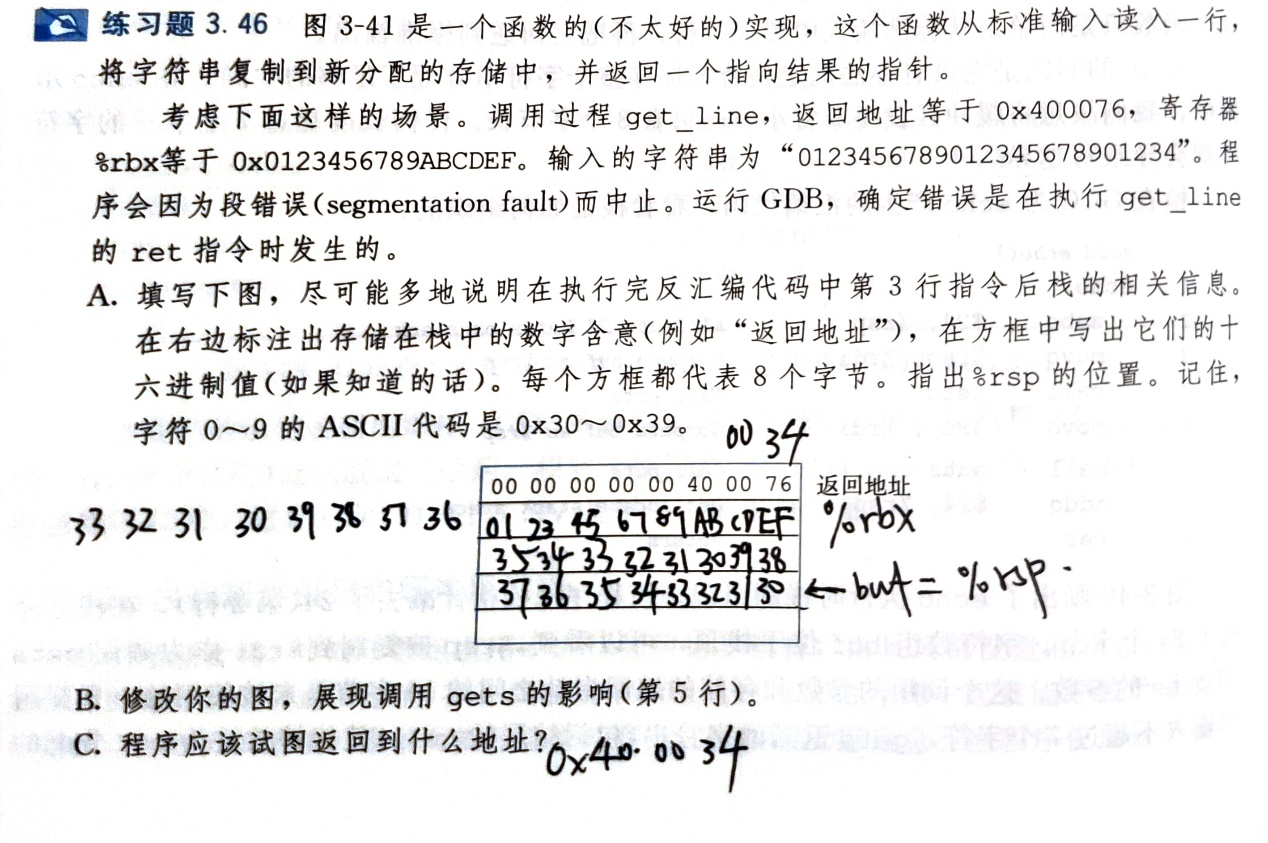 练习题 3.46 图 3-41 是一个函数的(不太好的)实现，这个函数从标准输入读入一行，
将字符串复制到新分配的存储中，并返回一个指向结果的指针。
考虑下面这样的场景。调用过程 get_line，返回地址等于 0x400076，寄存器
%rbx等于 0x0123456789ABCDEF。输入的字符串为“0123456789012345678901234”。程
序会因为段错误(segmentation fault)而中止。运行 GDB，确定错误是在执行 get_line
的 ret 指令时发生的。
A. 填写下图，尽可能多地说明在执行完反汇编代码中第 3 行指令后栈的相关信息。
在右边标注出存储在栈中的数字含意(例如“返回地址”)，在方框中写出它们的十
六进制值(如果知道的话)。每个方框都代表 8 个字节。指出%rsp 的位置。记住，
字符 0～9 的 ASCII 代码是 0x30～0x39。
00 34
00 00 00 00 00 40 00 76 返回地址
33 32 31 30 39 38 37 36 01 23 45 67 89 AB CD EF %rbx
35 34 33 32 31 30 39 38
37 36 35 34 33 32 31 30 ← buf = %rsp.
B. 修改你的图，展现调用 gets 的影响(第 5 行)。
C. 程序应该试图返回到什么地址？0x40 00 34